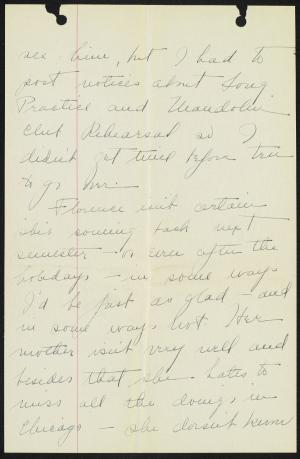 see him, but I had to
post notices about Song
Practice and Mandolin
Club Rehearsal so I
didn't get time before ten
to go over.
Florence isn't certain
she's coming back next
semester - or even after the
holidays - in some ways
I'd be just as glad - and
in some ways not. Her
mother isn't very well and
besides that she hates to
miss all the doings in
Chicago - she doesn't know